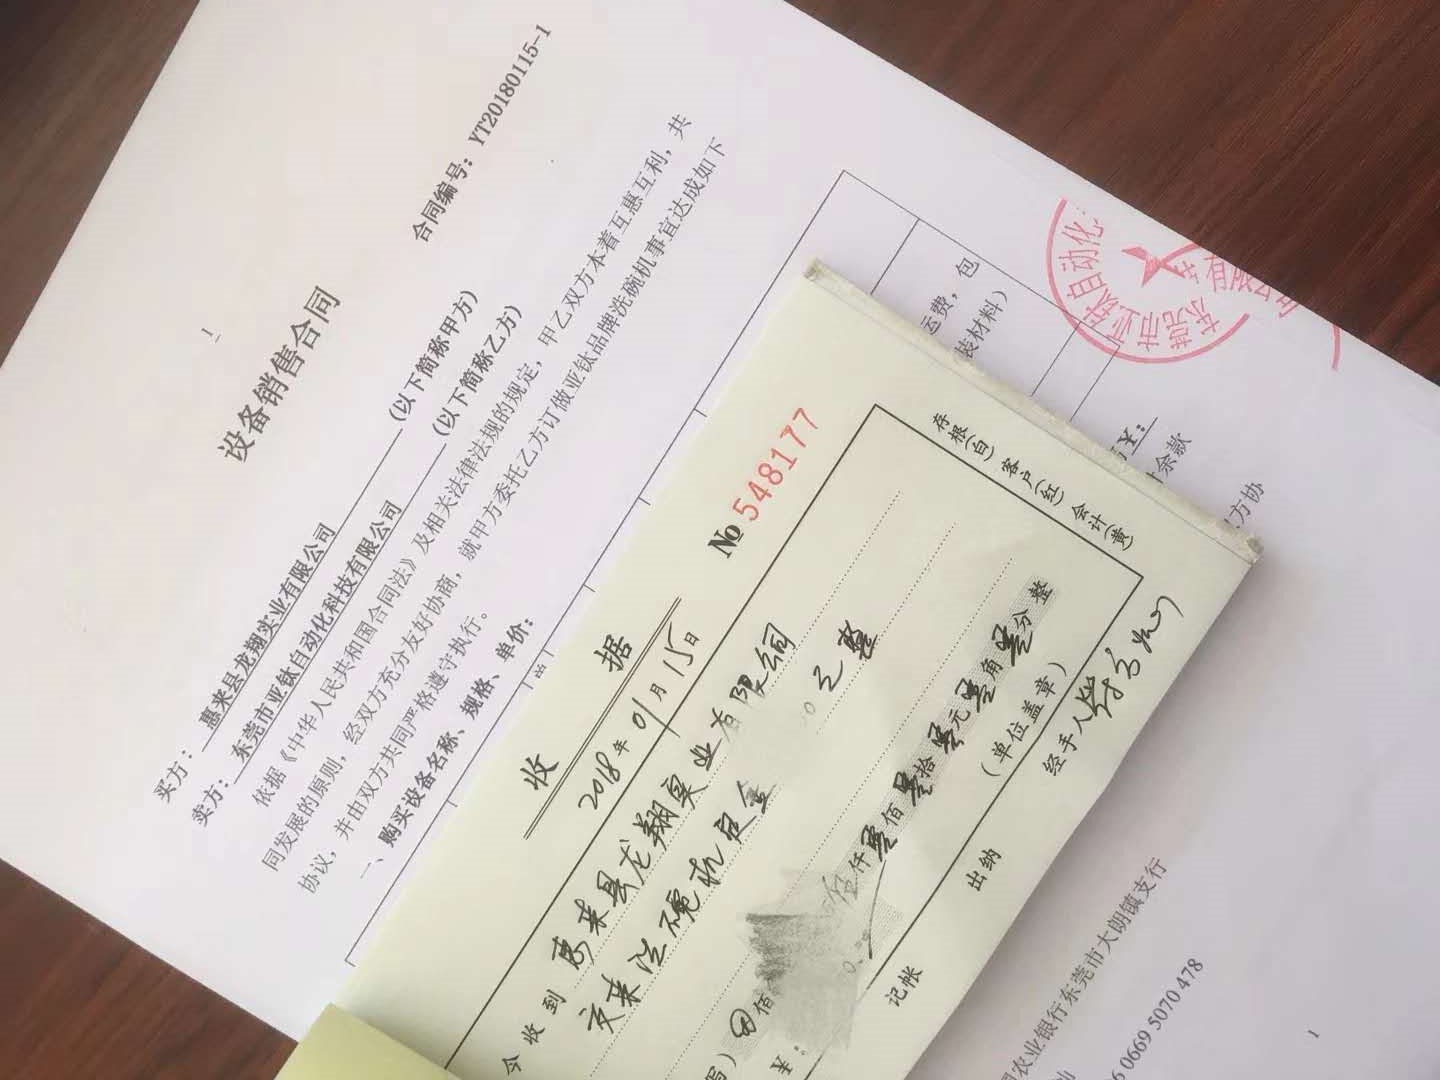 1
设备销售合同
合同编号：YT20180115-1
买方：惠来县龙翔实业有限公司（以下简称甲方）
卖方：东莞市亚钛自动化科技有限公司（以下简称乙方）
依据《中华人民共和国合同法》及相关法律法规的规定，甲乙双方本着互惠互利，共
同发展的原则，经双方充分友好协商，就甲方委托乙方订做亚钛品牌洗碗机事宜达成如下
协议，并由双方共同严格遵守执行。
一、购买设备名称、规格、单价：
运费，包
装材料）
¥：
余款
方协
东莞市亚钛自动化
收据
No 548177
2018年01月15日
今收到惠来县龙翔实业有限公司
交来洗碗机定金 0元整
写）佰 仟零佰零拾零元零角零分整
¥：
（单位盖章）
记帐 出纳 经手人
存根（白） 客户（红） 会计（黄）
农业银行东莞市大朗镇支行
6 0669 5070 478
1